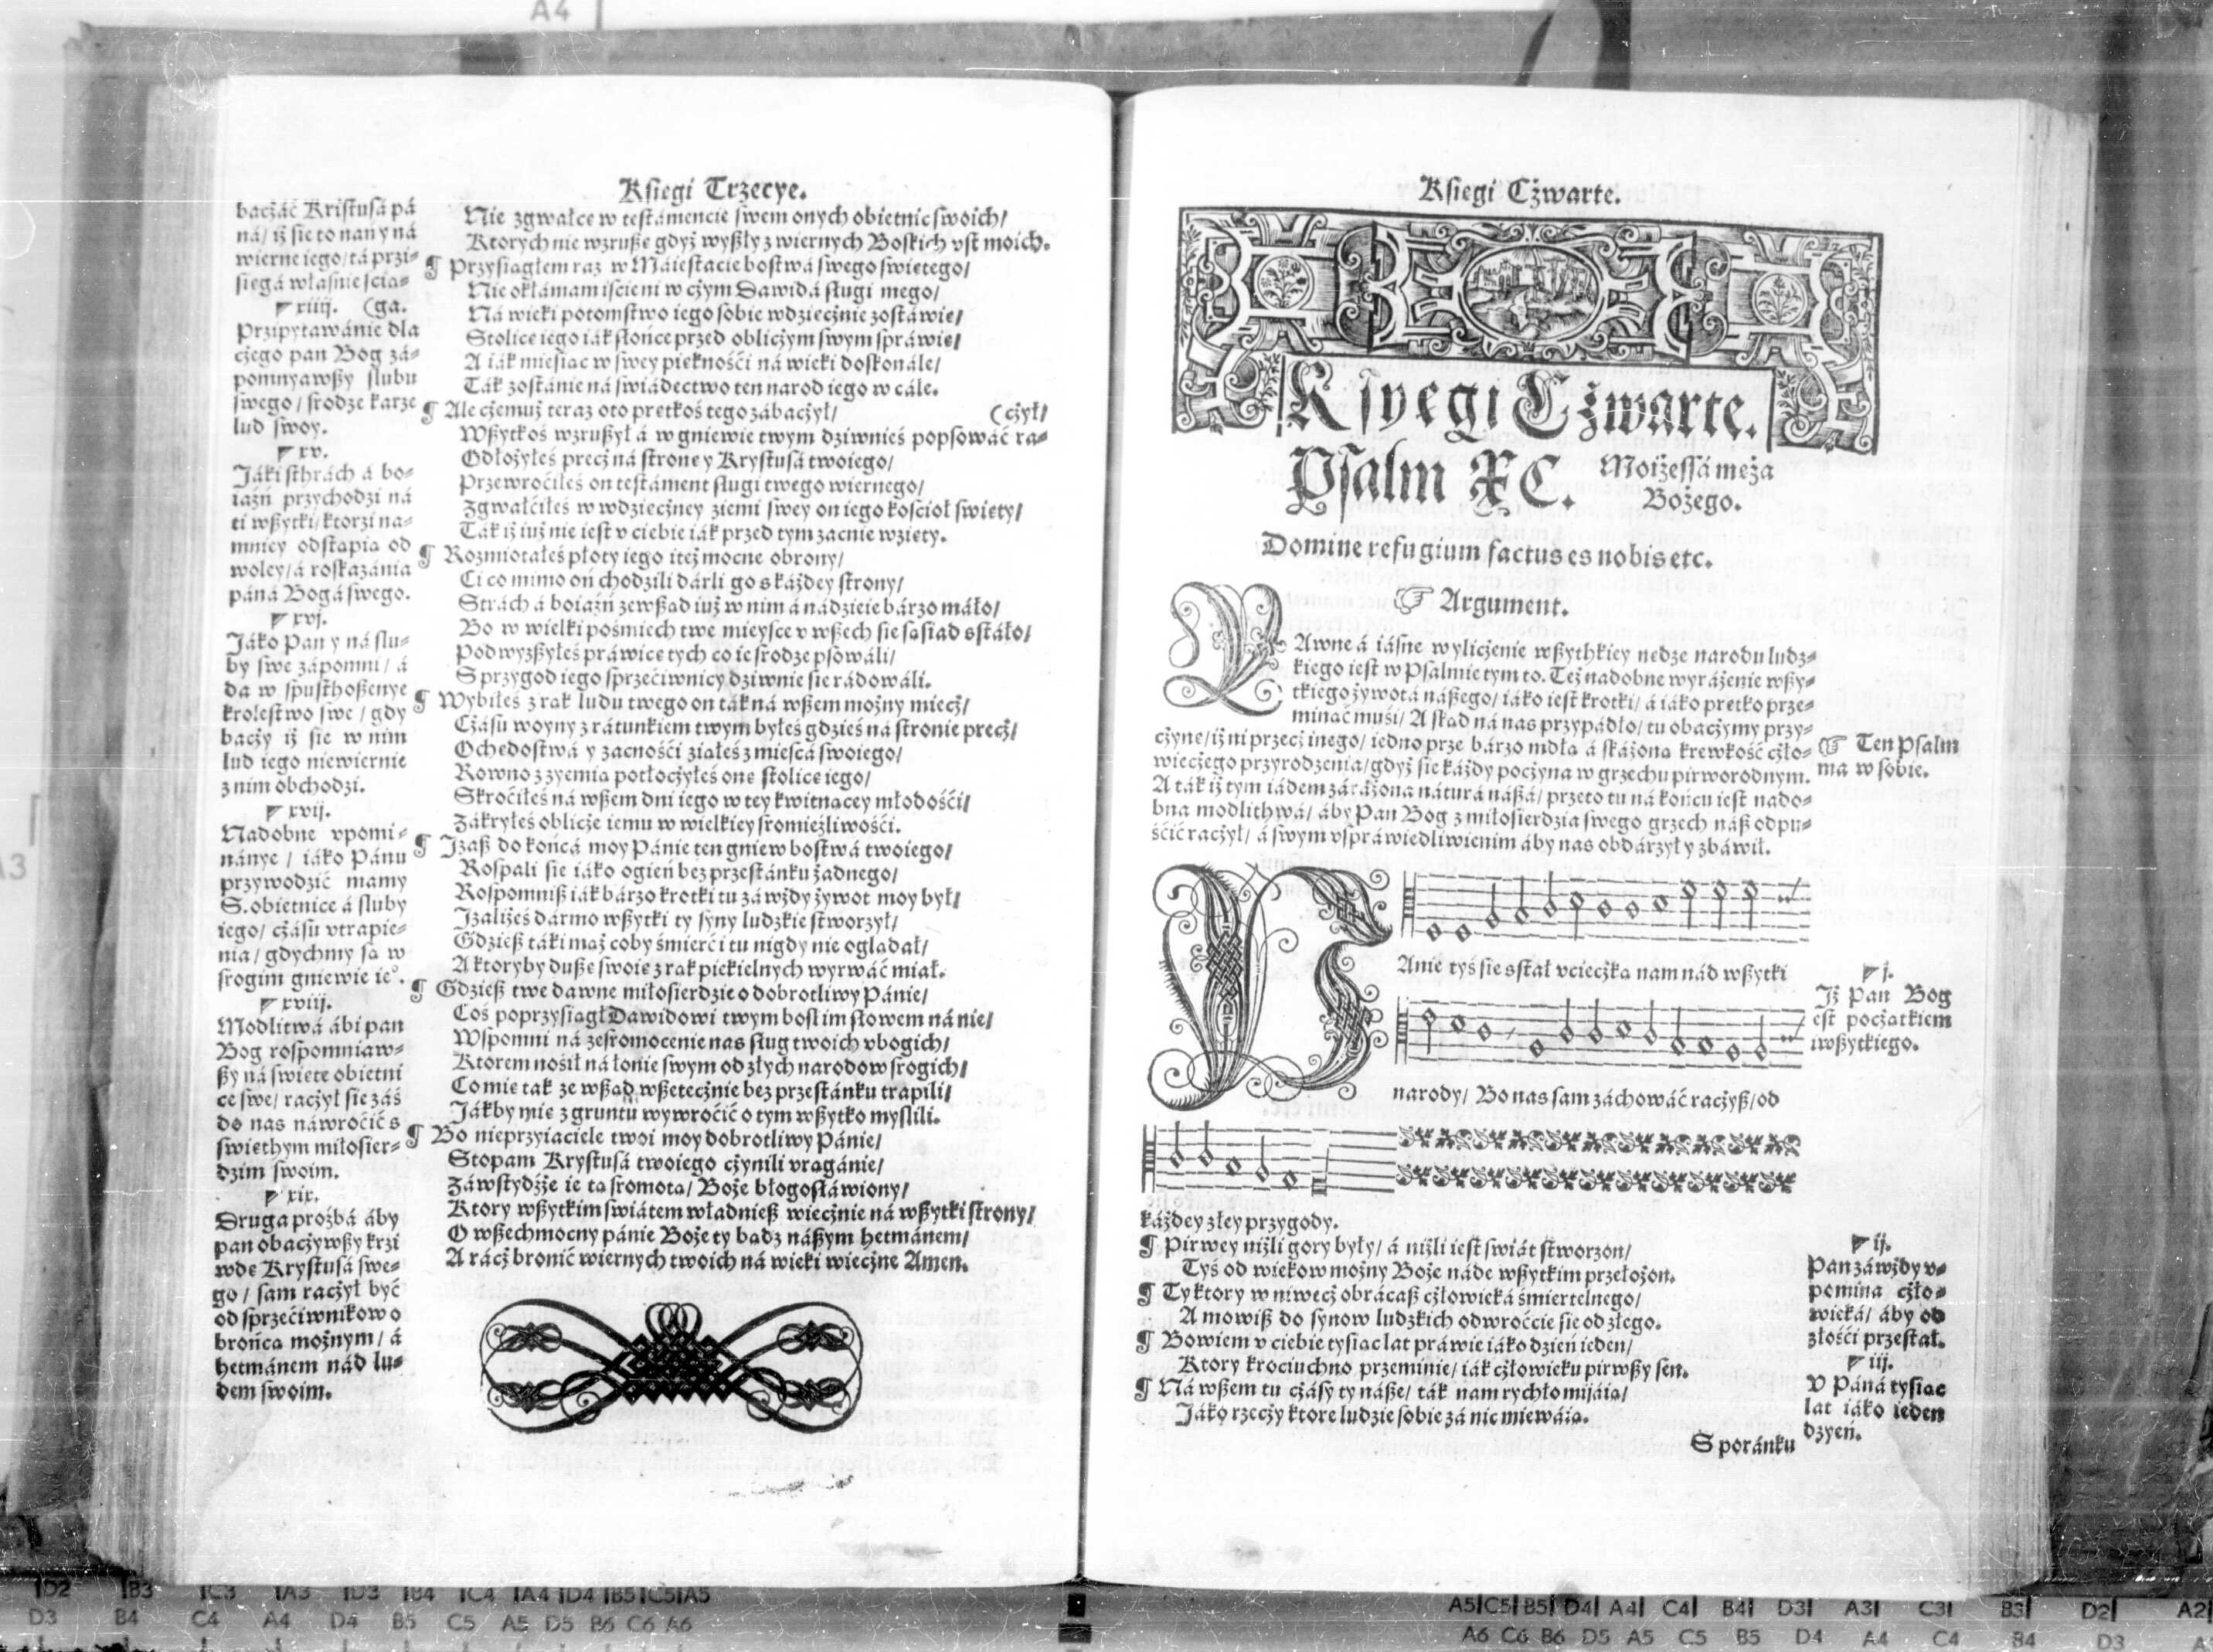 Księgi Trzecye.
baczáć Kristusá pá
ná/ iż sie to nań y ná
wierne iego/ tá przi-
sięgá własnie ścią-
xiiij. (ga.
Przipytawánie dla
czego pan Bog zá-
pomnyawszy slubu
swego/ srodze karze
lud swoy.
xv.
Jáki sthrách á bo-
iaźń przychodzi ná
ti wszytki/ ktorzi na-
mniey odstąpią od
woley/ á roskazánia
páná Bogá swego.
xvj.
Jáko Pan y ná slu-
by swe zápomni/ á
da w spusthoszenye
krolestwo swe/ gdy
baczy iż sie w nim
lud iego niewiernie
z nim obchodzi.
xvij.
Nadobne vpomi-
nánye/ iáko Pánu
przywodzić mamy
S. obietnice á sluby
iego/ czásu vtrapie-
nia/ gdychmy są w
srogim gniewie ie°.
xviij.
Modlitwá ábi pan
Bog rospomniaw-
szy ná swięte obietni
ce swe/ raczył sie záś
do nas náwroćić s
swiethym miłosier-
dzim swoim.
xix.
Druga proźbá áby
pan obaczywszy krzi
wdę Krystusá swe-
go/ sam raczył być
od sprzećiwnikow o
brońcą możnym/ á
hetmánem nád lu-
dem swoim.
Nie zgwałcę w testámencie swem onych obietnic swoich/
Ktorych nie wzruszę gdyż wyszły z wiernych Boskich vst moich.
¶ Przysiągłem raz w Máiestacie bostwá swego swiętego/
Nie okłámam iscie ni w czym Dawidá sługi mego/
Ná wieki potomstwo iego sobie wdzięcznie zostáwię/
Stolicę iego iák słońce przed obliczym swym spráwię/
A iák miesiąc w swey pięknośći ná wieki doskonále/
Ták zostánie ná swiádectwo ten narod iego w cále.
¶ Ale czemuż teraz oto prętkoś tego zábaczył/ (czył/
Wszytkoś wzruszył á w gniewie twym dziwnieś popsowáć ra-
Odłożyłeś precz ná stronę y Krystusá twoiego/
Przewroćiłeś on testáment sługi twego wiernego/
Zgwałćiłeś w wdzięczney ziemi swey on iego kośćioł swięty/
Ták iż iuż nie iest v ciebie iák przed tym zacnie wzięty.
¶ Rozmiotałeś płoty iego iteż mocne obrony/
Ci co mimo oń chodzili dárli go s káżdey strony/
Strách á boiaźń zewsząd iuż w nim á nádzieie bárzo máło/
Bo w wielki pośmiech twe mieysce v wszech sie sąsiad sstáło/
Podwyzszyłeś práwicę tych co ie srodze psowáli/
S przygod iego sprzećiwnicy dziwnie sie rádowáli.
¶ Wybiłeś z rąk ludu twego on ták ná wszem możny miecz/
Czásu woyny z rátunkiem twym byłeś gdzieś ná stronie precz/
Ochędostwá y zacnośći ziąłeś z miescá swoiego/
Rowno z zyemią potłoczyłeś onę stolicę iego/
Skroćiłeś ná wszem dni iego w tey kwitnącey młodośći/
Zákryłeś oblicze iemu w wielkiey sromieźliwośći.
¶ Jzasz do końcá moy Pánie ten gniew bostwá twoiego/
Rospali sie iáko ogień bez przestánku żadnego/
Rospomnisz iák bárzo krotki tu záwżdy żywot moy był/
Jzaliżeś dármo wszytki ty syny ludzkie stworzył/
Gdziesz táki mąż coby śmierći tu nigdy nie oglądał/
A ktoryby duszę swoię z rąk piekielnych wyrwáć miał.
¶ Gdziesz twe dawne miłosierdzie o dobrotliwy Pánie/
Coś poprzysiągł Dawidowi twym boskim słowem ná nie/
Wspomni ná zesromocenie nas sług twoich vbogich/
Ktorem nosił ná łonie swym od złych narodow srogich/
Co mię tak ze wsząd wszetecznie bez przestánku trapili/
Jákby mię z gruntu wywroćić o tym wszytko myslili.
¶ Bo nieprzyiaciele twoi moy dobrotliwy Pánie/
Stopam Krystusá twoiego czynili vrągánie/
Záwstydźże ie tą sromotą/ Boże błogosłáwiony/
Ktory wszytkim swiátem władniesz wiecznie ná wszytki strony/
O wszechmocny pánie Boże ty bądz nászym hetmánem/
A rácz bronić wiernych twoich ná wieki wieczne Amen.
Księgi Czwarte.
Księgi Czwarte.
Psalm XC. Moiżeszá mężá
Bożego.
Domine refugium factus es nobis etc.
☞ Argument.
JAwne á iásne wyliczenie wszythkiey nędze narodu ludz-
kiego iest w Psalmie tym to. Też nadobne wyráżenie wszy-
tkiego żywotá nászego/ iáko iest krotki/ á iáko prętko prze-
minąć muśi/ A skąd ná nas przypádło/ tu obaczymy przy-
czynę/ iż ni przecz inego/ iedno prze bárzo mdłą á skáżoną krewkość czło-
wieczego przyrodzenia/ gdyż sie káżdy poczyna w grzechu pirworodnym.
A ták iż tym iádem záráżona náturá nászá/ przeto tu ná końcu iest nado-
bna modlithwá/ áby Pan Bog z miłosierdzia swego grzech nász odpu-
śćić raczył/ á swym vspráwiedliwienim áby nas obdárzył y zbáwił.
☞ Ten Psalm
ma w sobie.
PAnie tyś sie sstał vcieczką nam nád wszytki
narody/ Bo nas sam záchowáć raczysz/ od
káżdey złey przygody.
j.
Jż Pan Bog
est początkiem
wszytkiego.
¶ Pirwey niżli gory były/ á niżli iest swiát stworzon/
Tyś od wiekow możny Boże náde wszytkim przełożon.
¶ Ty ktory w niwecz obrácasz człowieká śmiertelnego/
A mowisz do synow ludzkich odwroććie sie od złego.
¶ Bowiem v ciebie tysiąc lat práwie iáko dzień ieden/
Ktory krociuchno przeminie/ iák człowieku pirwszy sen.
¶ Ná wszem tu czásy ty násze/ ták nam rychło mijáią/
Jáko rzeczy ktore ludzie sobie zá nic miewáią.
ij.
Pan záwżdy v-
pomina czło-
wieká/ áby od
złośći przestał.
iij.
V Páná tysiąc
lat iáko ieden
dzyeń.
S poránku